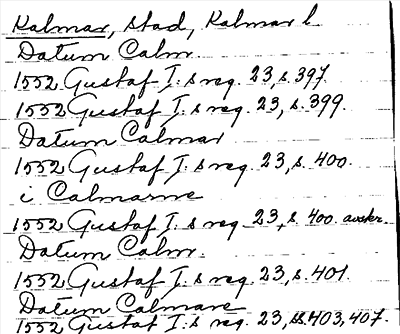 Kalmar, stad, Kalmar l.
Datum Calm
1552 Gustaf I:s reg. 23, s. 397.
1552 Gustaf I:s reg. 23, s. 399.
Datum Calmar
1552 Gustaf I:s reg. 23, s. 400.
i Calmarne
1552 Gustaf I:s reg. 23, s. 400. avskr.
Datum Calm.
1552 Gustaf I:s reg. 23, s. 401.
Datum Calmare
1552 Gustaf I:s reg. 23, ss. 403, 407.